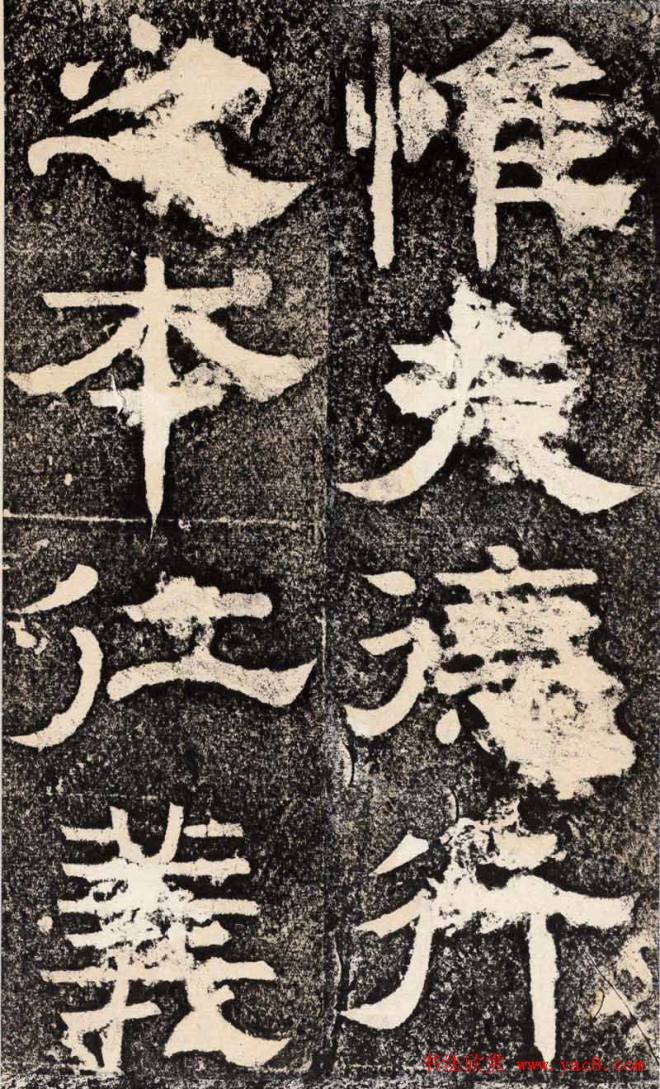 惟夫德行
之本仕義
书法欣赏 www.yac8.com